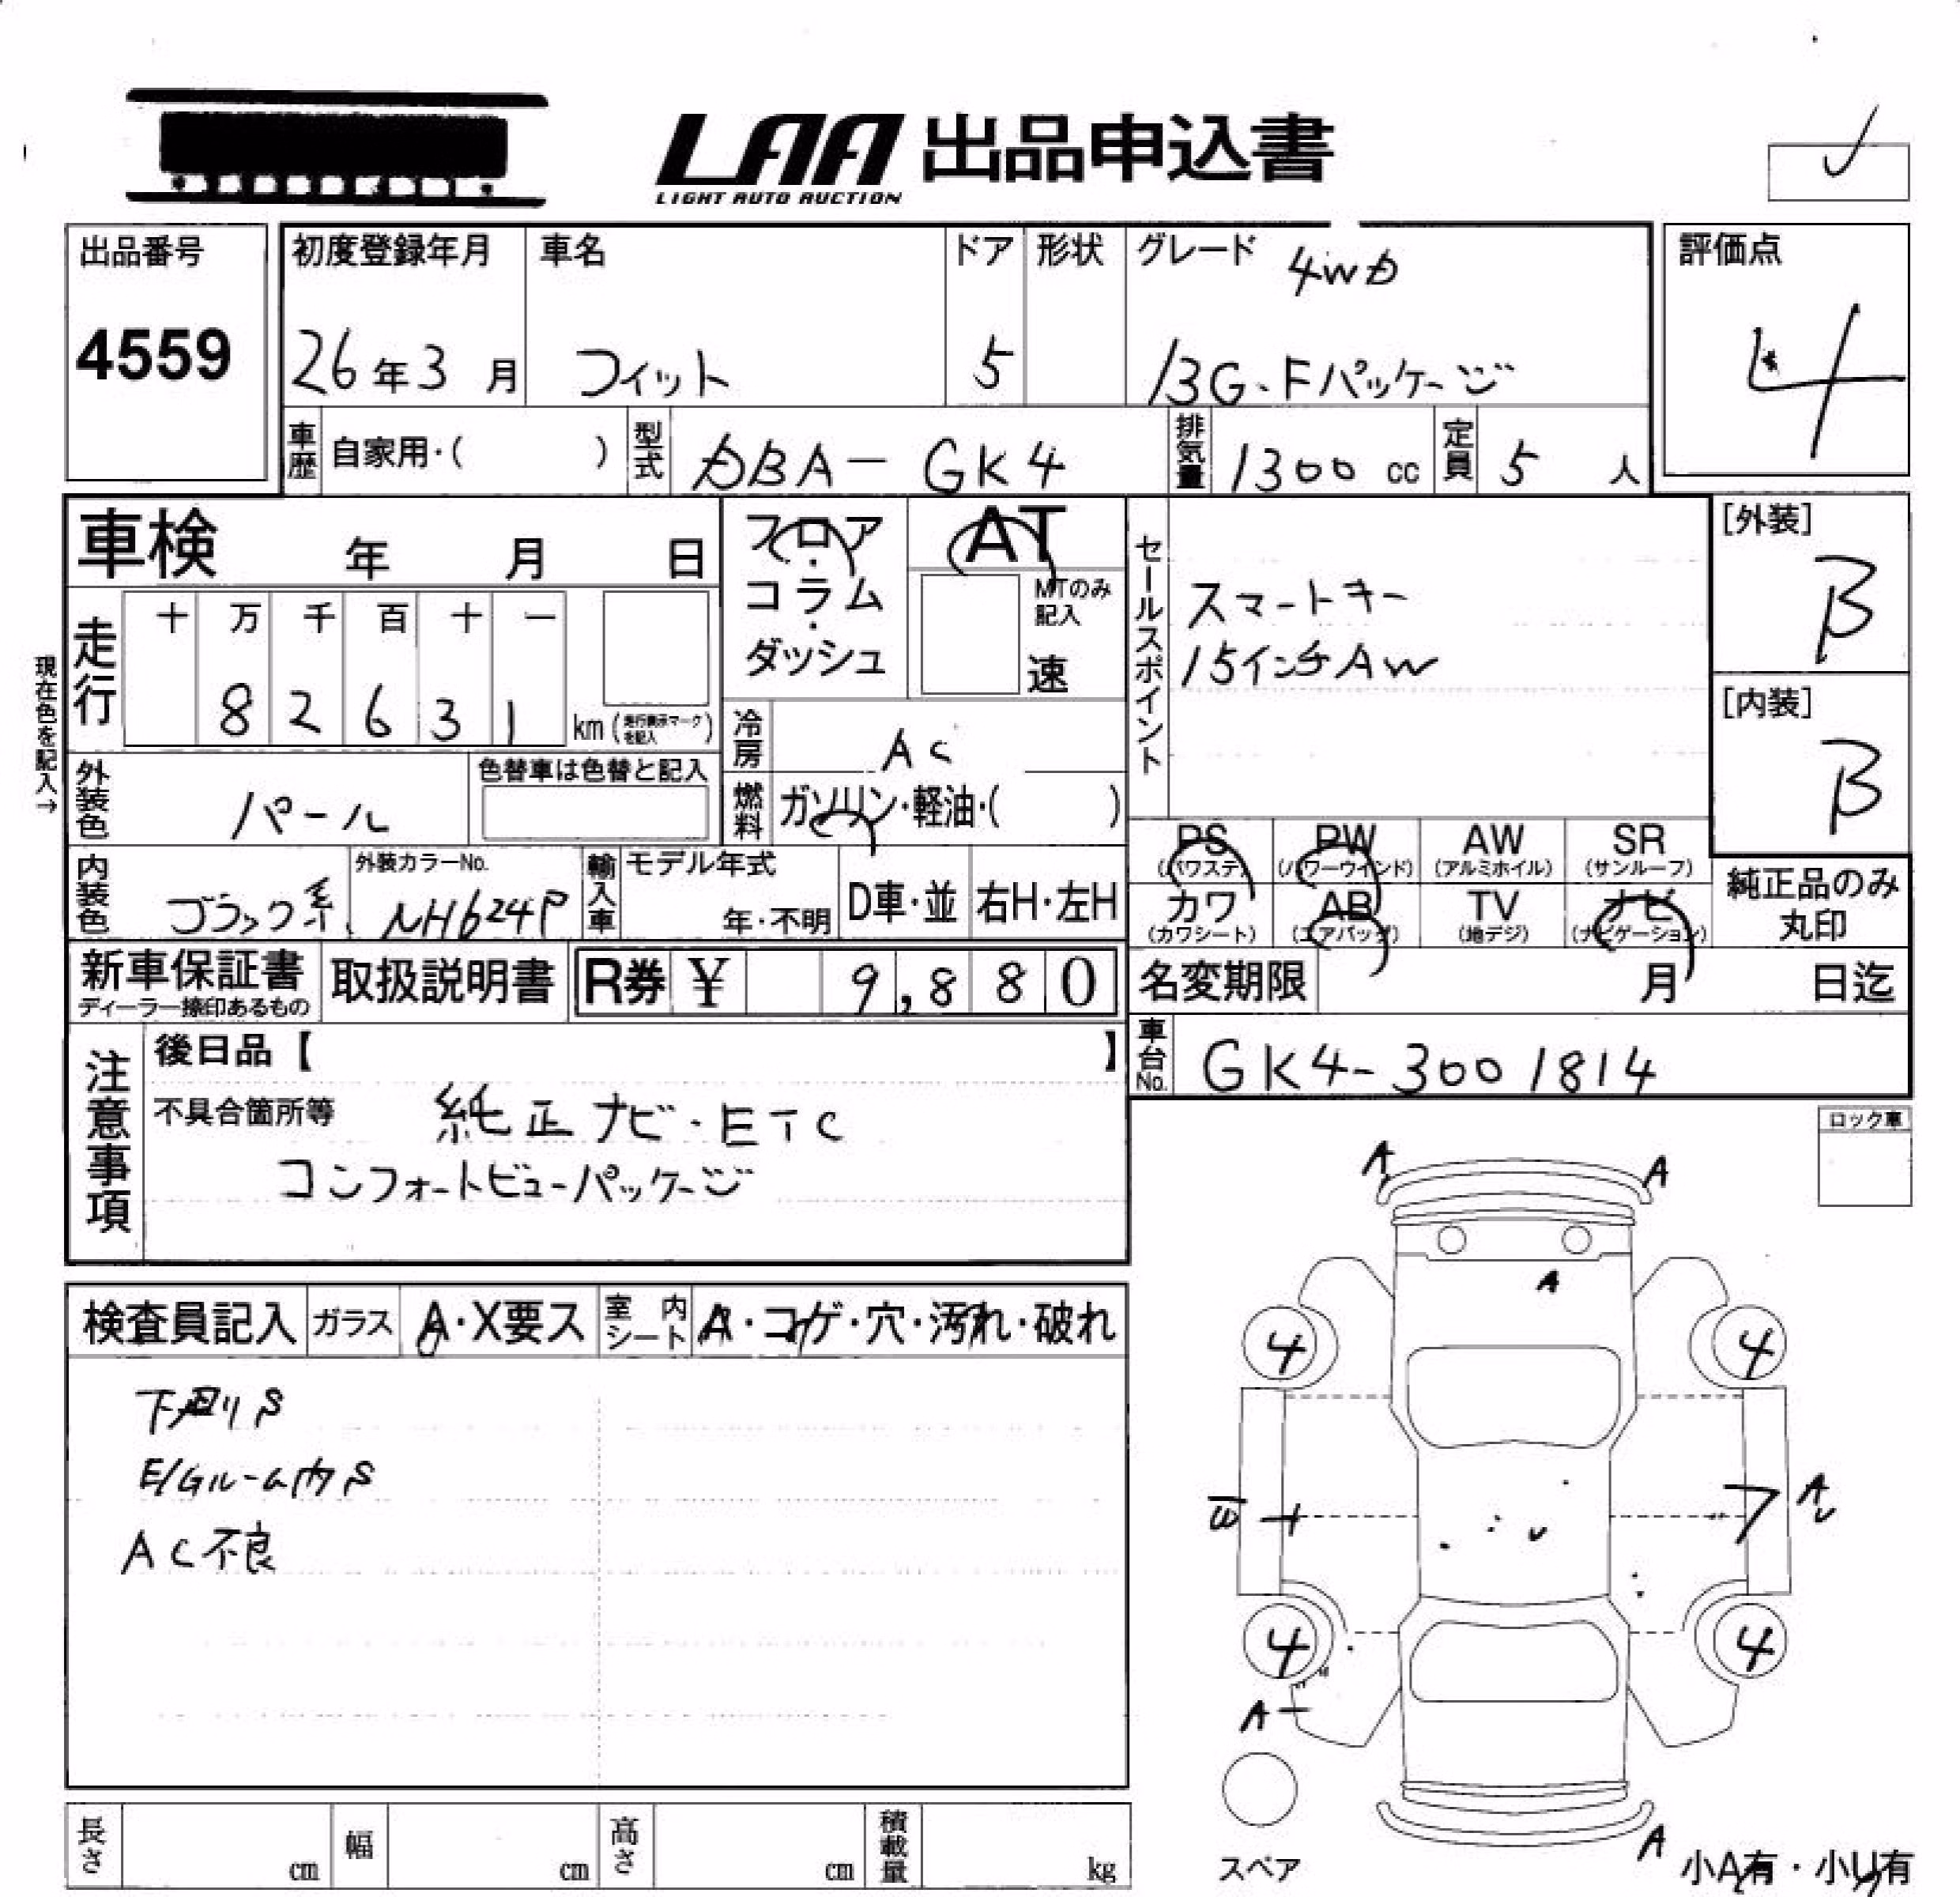 LAA 出品申込書
LIGHT AUTO AUCTION
出品番号
4559
初度登録年月
26年3月
車名
フィット
ドア
5
形状
グレード 4WD
13G・Fパッケージ
評価点
4
車歴 自家用・( )
型式 DBA-GK4
排気量 1300 cc
定員 5 人
車検 年 月 日
フロア・コラム・ダッシュ
AT
MTのみ記入
速
セールスポイント
スマートキー
15インチAW
[外装]
B
[内装]
B
現在色を記入→
走行
十 万 千 百 十 一
8 2 6 3 1 km (走行表示マークを記入)
冷房 AC
外装色 パール
色替車は色替と記入
燃料 ガソリン・軽油・( )
PS (パワステ)
PW (パワーウィンド)
AW (アルミホイル)
SR (サンルーフ)
内装色 ブラック系
外装カラーNo.
NH624P
輸入車
モデル年式
年・不明
D車・並
右H・左H
カワ (カワシート)
AB (エアバッグ)
TV (地デジ)
ナビ (ナビゲーション)
純正品のみ丸印
新車保証書
ディーラー捺印あるもの
取扱説明書
R券 ¥ 9,880
名変期限 月 日迄
車台No. GK4-3001814
注意事項
後日品【 】
不具合箇所等 純正ナビ・ETC
コンフォートビューパッケージ
ロック車
検査員記入
ガラス A・X要ス
室内シート A・コゲ・穴・汚れ・破れ
下廻りS
E/Gルーム内S
AC不良
A
A
A
4
4
A
4
4
A
A
スペア
小A有・小U有
長さ cm
幅 cm
高さ cm
積載量 kg